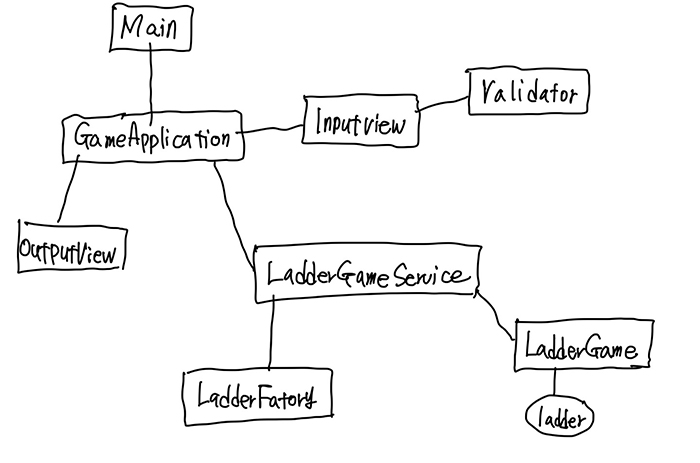 Main
Validator
InputView
GameApplication
OutputView
LadderGameService
LadderGame
LadderFatory
ladder